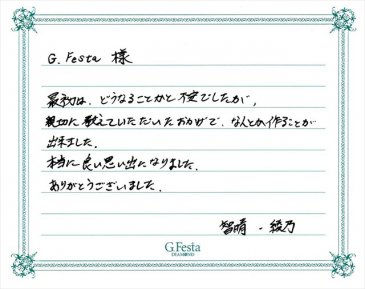 G.Festa 様
最初は、どうなることかと不安でしたが、
親切に教えていただいたおかげで、なんとか作ることが
出来ました。
本当に良い思い出になりました。
ありがとうございました。
智晴・綾乃
G.Festa
DIAMOND